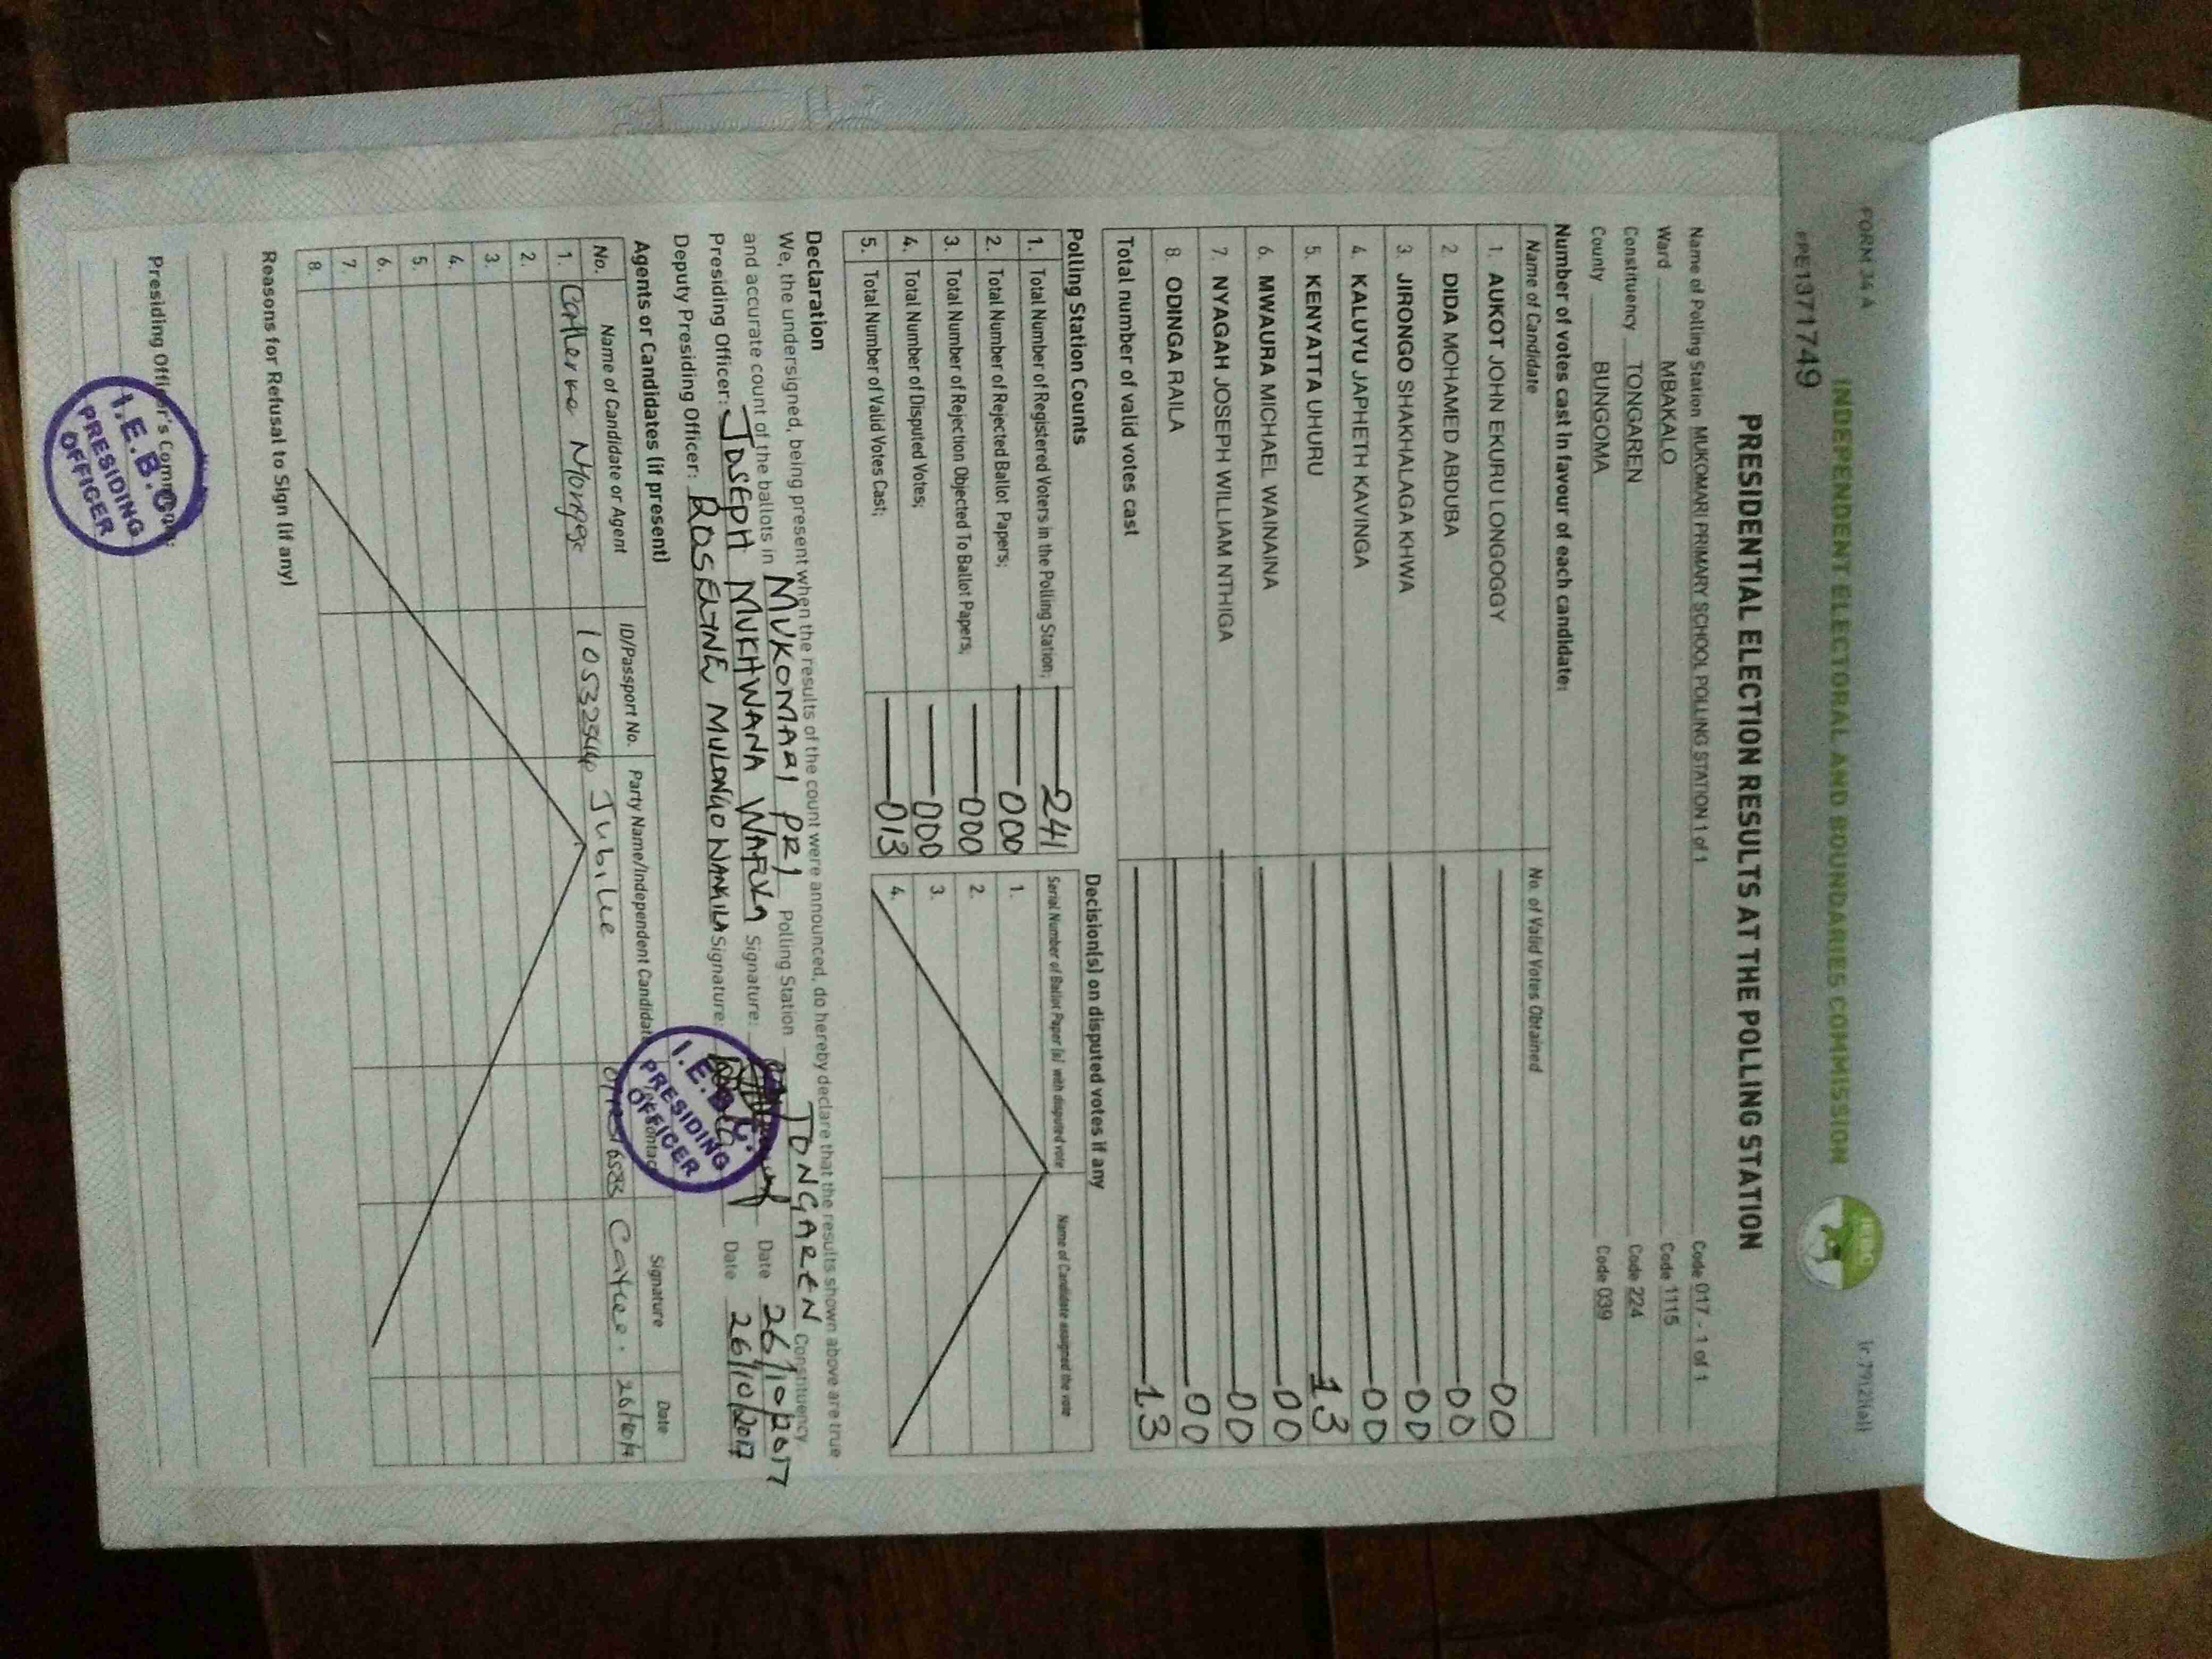 FORM 34 A
(r. 79(2)(a))
INDEPENDENT ELECTORAL AND BOUNDARIES COMMISSION
IEBC
#PE1371749
PRESIDENTIAL ELECTION RESULTS AT THE POLLING STATION
Name of Polling Station MUKOMARI PRIMARY SCHOOL POLLING STATION 1 of 1 Code 017 - 1 of 1
Ward MBAKALO Code 1115
Constituency TONGAREN Code 224
County BUNGOMA Code 039
Number of votes cast in favour of each candidate:
Name of Candidate No. of Valid Votes Obtained
1. AUKOT JOHN EKURU LONGOGGY 00
2. DIDA MOHAMED ABDUBA 00
3. JIRONGO SHAKHALAGA KHWA 00
4. KALUYU JAPHETH KAVINGA 00
5. KENYATTA UHURU 13
6. MWAURA MICHAEL WAINAINA 00
7. NYAGAH JOSEPH WILLIAM NTHIGA 00
8. ODINGA RAILA 00
Total number of valid votes cast 13
Polling Station Counts
1. Total Number of Registered Voters in the Polling Station; 241
2. Total Number of Rejected Ballot Papers; 000
3. Total Number of Rejection Objected To Ballot Papers; 000
4. Total Number of Disputed Votes; 000
5. Total Number of Valid Votes Cast; 013
Decision(s) on disputed votes if any
Serial Number of Ballot Paper (s) with disputed vote Name of Candidate assigned the vote
1.
2.
3.
4.
Declaration
We, the undersigned, being present when the results of the count were announced, do hereby declare that the results shown above are true
and accurate count of the ballots in MUKOMARI PRI Polling Station TONGAREN Constituency
Presiding Officer: JOSEPH MUKHWANA WAFULA Signature: Date 26/10/2017
Deputy Presiding Officer: ROSELYNE MULONGO NANKILA Signature: Date 26/10/2017
I.E.B.C.
PRESIDING
OFFICER
Agents or Candidates (if present)
No. Name of Candidate or Agent ID/Passport No. Party Name/Independent Candidate Contact Signature Date
1. Jubilee 26/10/17
2.
3.
4.
5.
6.
7.
8.
Reasons for Refusal to Sign (if any)
Presiding Officer's Comments:
I.E.B.C.
PRESIDING
OFFICER